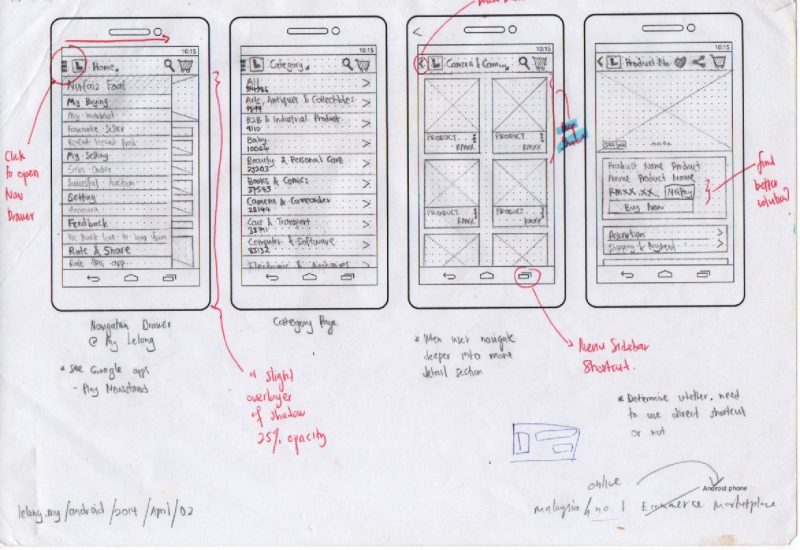 10:15
Home
Nurfaiz Foad
My Buying
My
Favourite Seller
My Selling
Sales Order
Successful Auction
Setting
Account
Feedback
Rate & Share
Rate this app.
Click
to open
Nav
Drawer
Navigation Drawer
@ My Lelong
* See Google apps
- Play Newsstand
a slight
overlayer
of shadow
25% opacity
10:15
Category
All
Arts, Antiques & Collectibles
B2B & Industrial Product
9110
Baby
10064
Beauty & Personal Care
Books & Comics
Camera & Camcorder
Cars & Transport
Computer & Software
Category Page
10:15
PRODUCT.
RMXX
PRODUCT.
RMXX
PRODUCT.
RMXX
PRODUCT.
RMXX
* When user navigate
deeper into more
detail section
Menu Sidebar
Shortcut.
10:15
Product Na
Product Name Product
Name Product Name
RMXX.XX
Buy Now
Description
Shipping & Payment
find
better
solution?
* Determine whether, need
to use direct shortcut
or not
online
Android phone
Malaysia no. 1 Ecommerce Marketplace.
lelong.my/android/2014/April/02